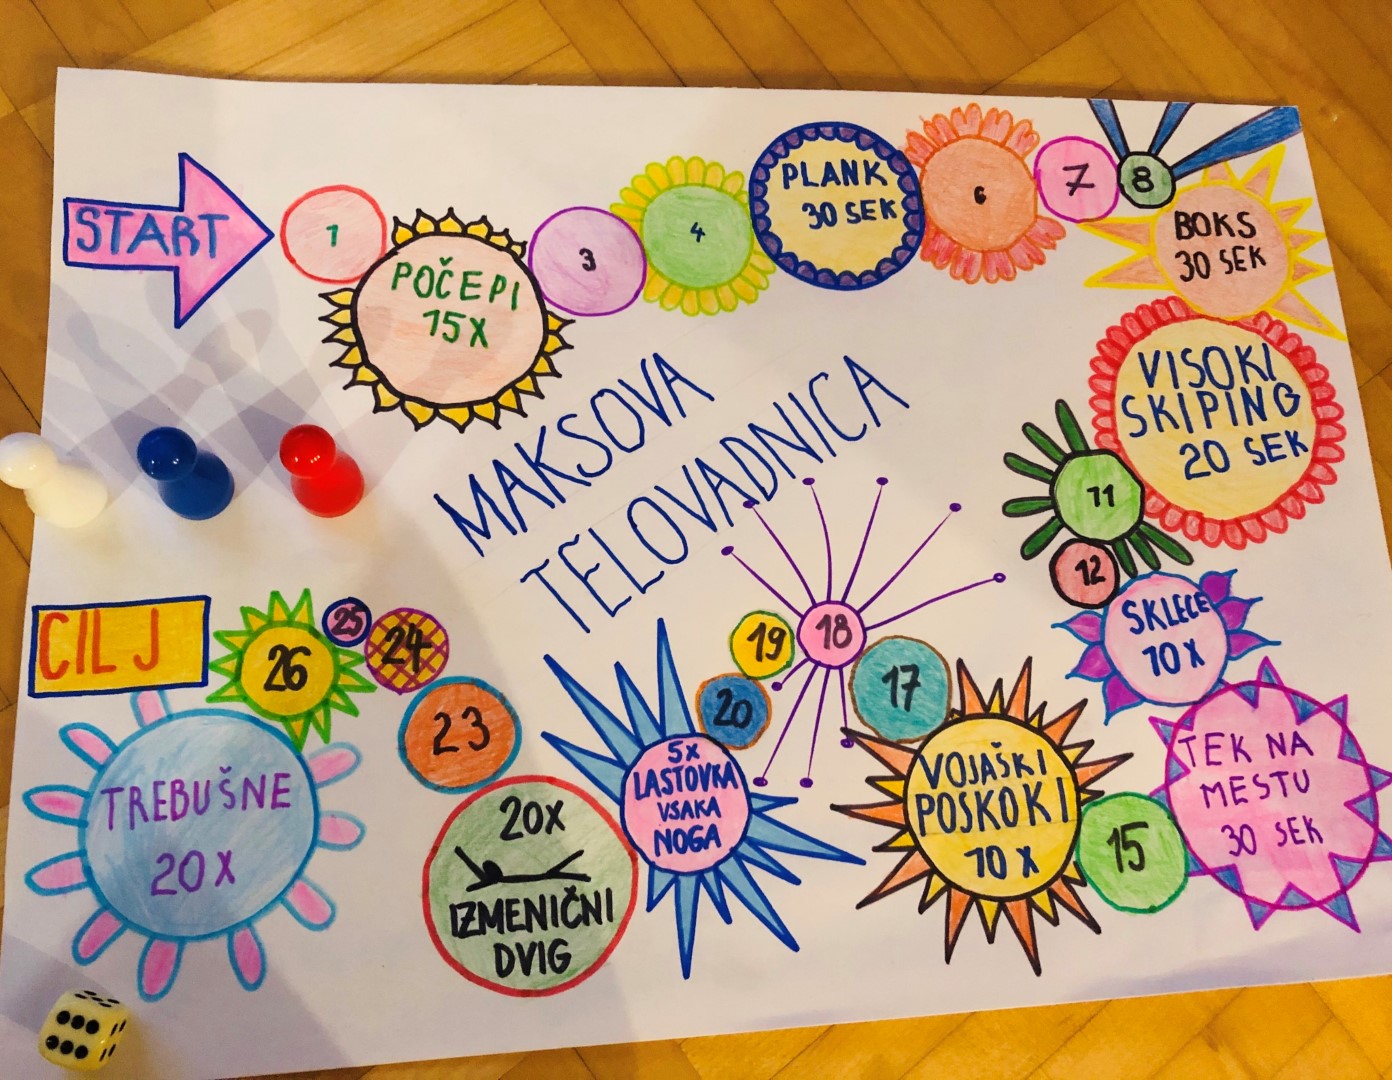 START
1
POČEPI
15X
3
4
PLANK
30 SEK
6
7
8
BOKS
30 SEK
VISOKI
SKIPING
20 SEK
11
12
SKLECE
10X
TEK NA
MESTU
30 SEK
15
VOJAŠKI
POSKOKI
10 X
17
18
19
20
5X
LASTOVKA
VSAKA
NOGA
20X
IZMENIČNI
DVIG
23
24
25
26
TREBUŠNE
20X
CILJ
MAKSOVA
TELOVADNICA